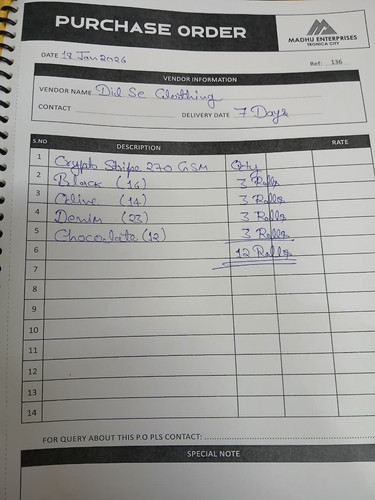 PURCHASE ORDER
MADHU ENTERPRISES
TRONICA CITY
DATE 12 Jan 2026
Ref: 136
VENDOR INFORMATION
VENDOR NAME Dil Se Clothing
CONTACT
DELIVERY DATE 7 Days
S.NO DESCRIPTION RATE
1 Crypto Stripe 270 GSM Qty
2 Black (16) 3 Rolls
3 Olive (14) 3 Rolls
4 Denim (23) 3 Rolls
5 Chocolate (12) 3 Rolls
6 12 Rolls
7
8
9
10
11
12
13
14
FOR QUERY ABOUT THIS P.O PLS CONTACT:
SPECIAL NOTE